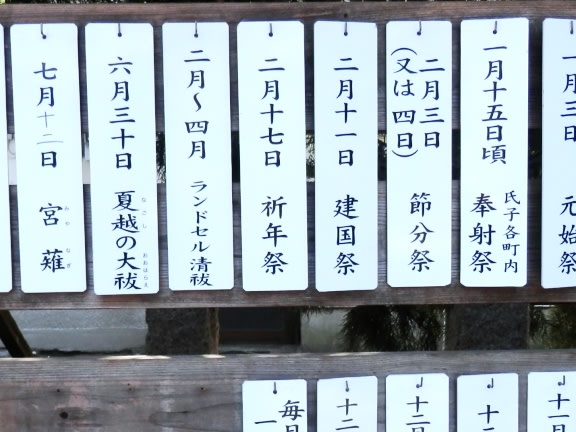 一月三日
元始祭
一月十五日頃
氏子各町内
奉射祭
二月三日
(又は四日)
節分祭
二月十一日
建国祭
二月十七日
祈年祭
二月～四月
ランドセル清祓
六月三十日
夏越の大祓
なごし
おおはらえ
七月十二日
宮薙
みやなぎ
十一月
十二
十二月
十二
毎月
一